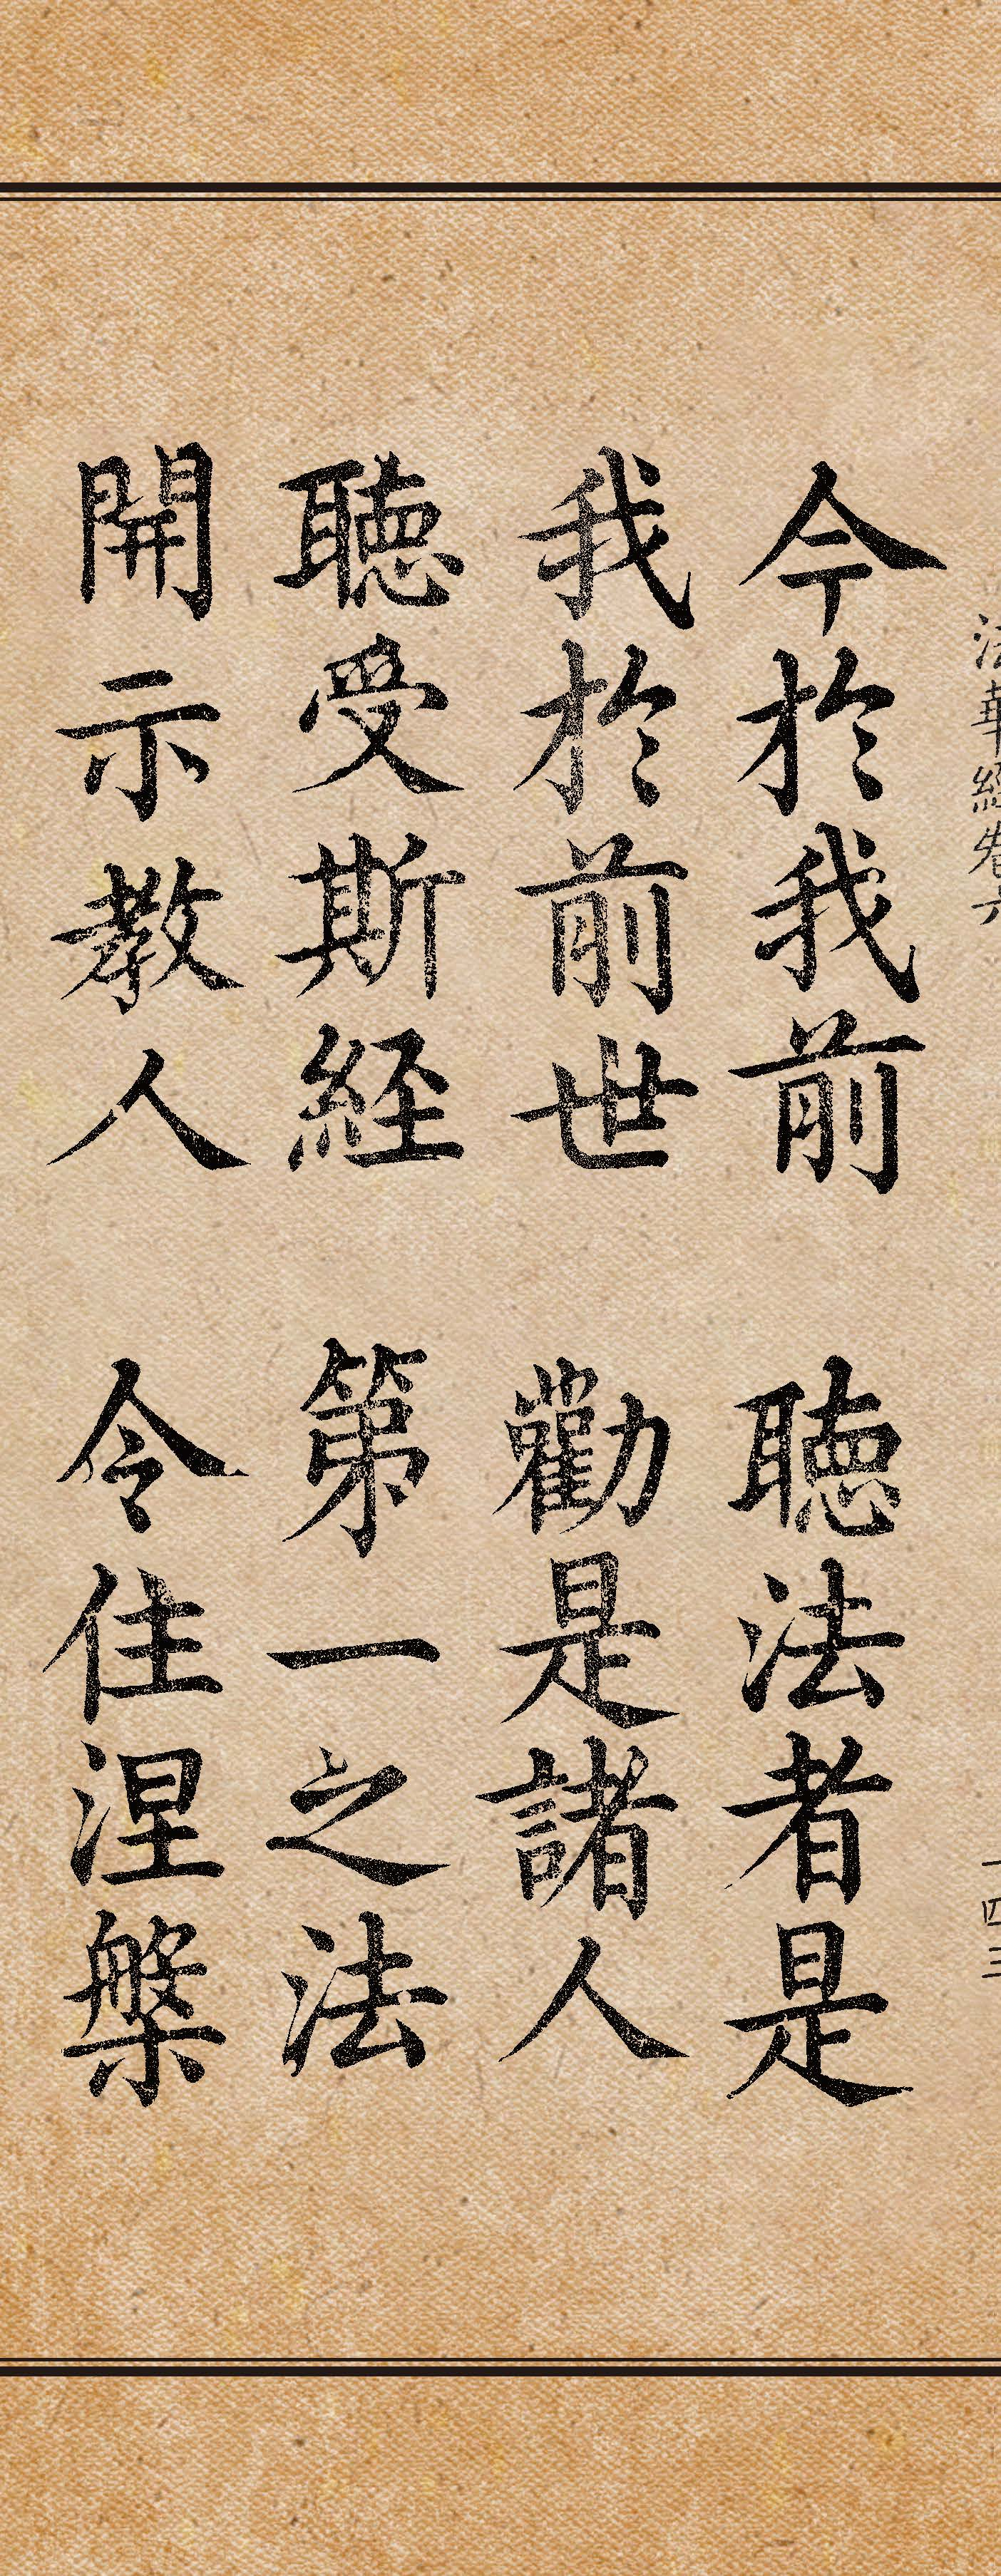 法華經卷六 一四三
今於我前 聽法者是
我於前世 勸是諸人
聽受斯經 第一之法
開示教人 令住涅槃